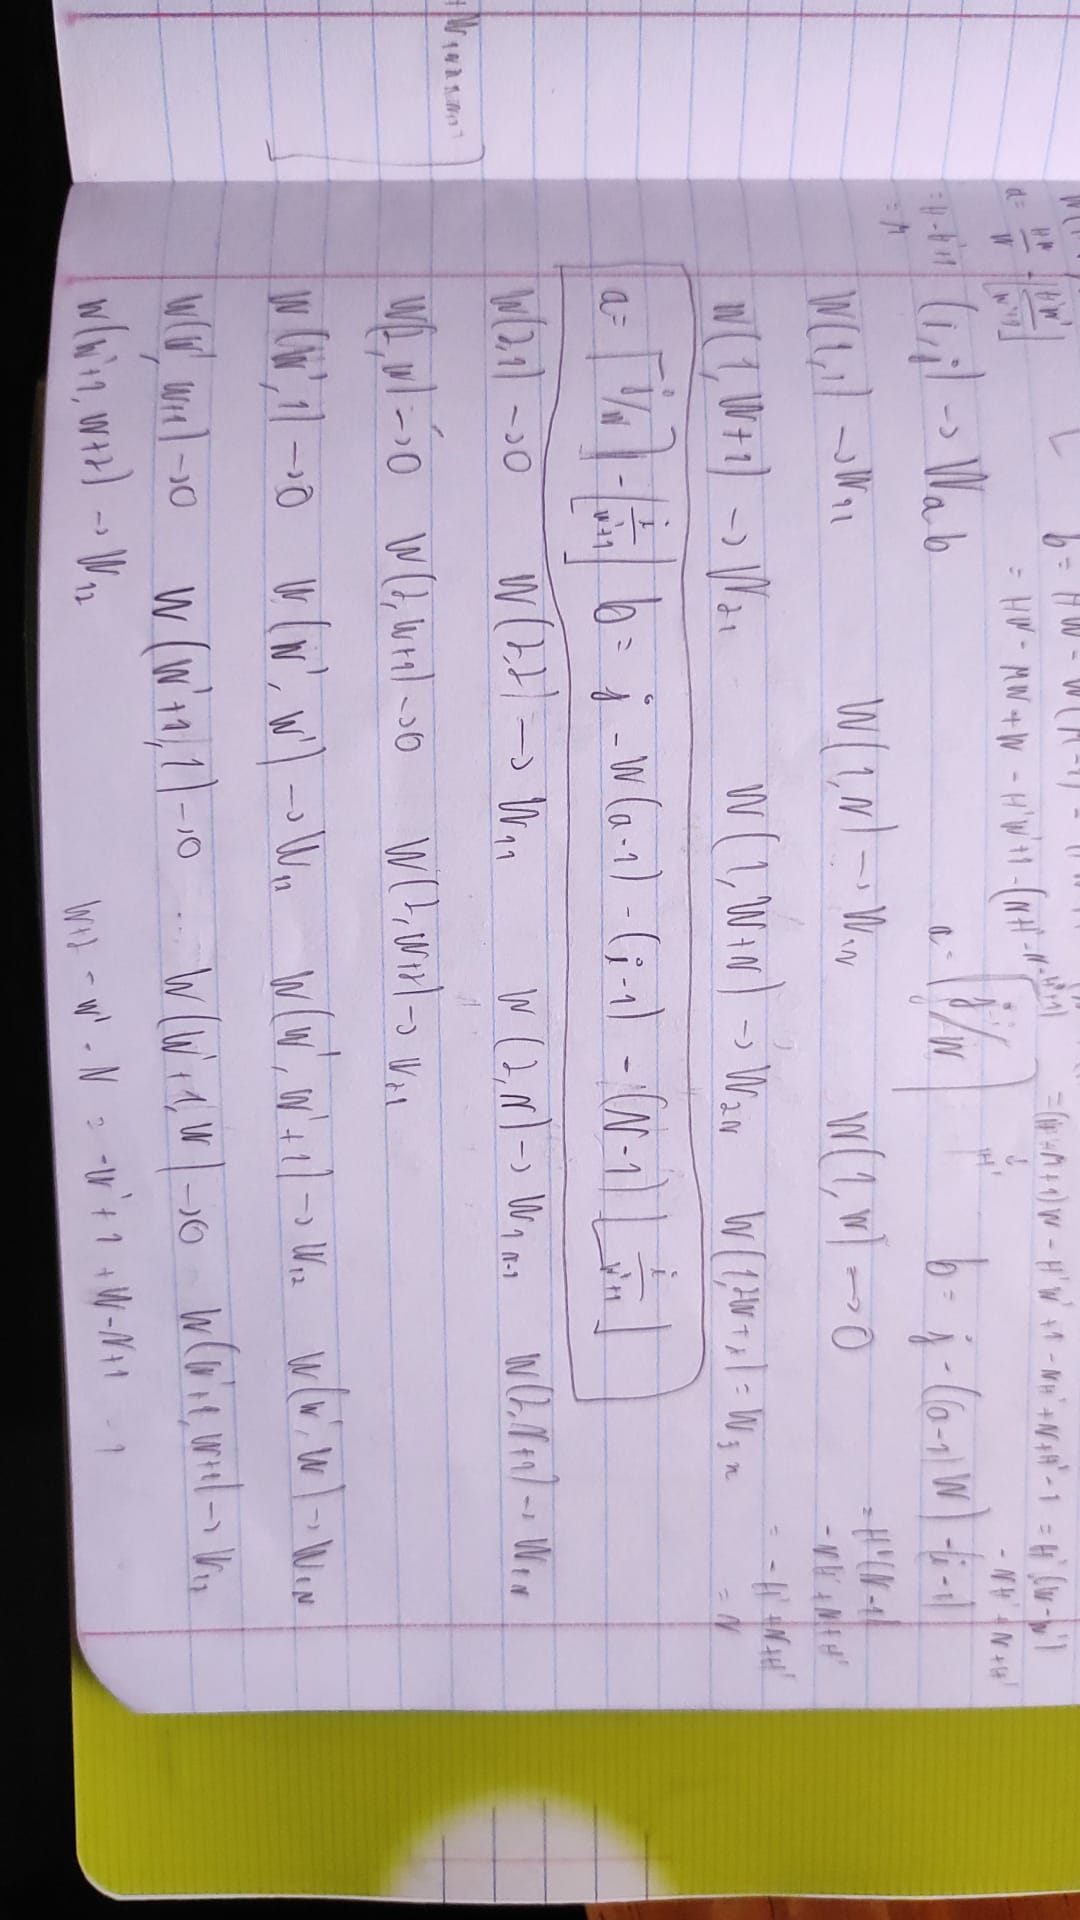 b = HW - W(M-1) -
a = HW/W - ⌊H'W'/W'+1⌋
= HW - MW + W - H'W' + 1 - (NH' - N - H' + 1)
= (H - M + 1)W - H'W' + 1 - NH' + N + H' - 1 = H'(W - W')
↓
H'
- NH' + N + H'
= H - H' + 1
= M
(i,j) → W a b
a = ⌈j/W⌉
b = j - ((a-1)W) - (i-1)
= H'(N-1)
- NH' + N + H'
= - H' + N + H'
= N
W(1,1) → W11 W(1,N) → W1N W(1,W) → 0
W(1,W+1) → W21 W(1,W+N) → W2N W(1,2W+x) = W3x
a = ⌈j/W⌉ - ⌊i/W'+1⌋ b = j - W(a-1) - (i-1) - (N-1) ⌊i/W'+1⌋
W(2,1) → 0 W(2,2) → W11 W(2,N) → W1 N-1 W(2,N+1) → W1N
W(2,W) → 0 W(2,W+1) → 0 W(2,W+2) → W21
W(W',1) → 0 W(W',W') → W11 W(W',W'+1) → W12 W(W',W) → W1N
W(W',W+1) → 0 W(W'+1,1) → 0 ... W(W'+1,W) → 0 W(W'+1,W+1) → W11
W(W'+1,W+2) → W12 W+2 - W' - N = -W' + 1 + W - N + 1 - 1